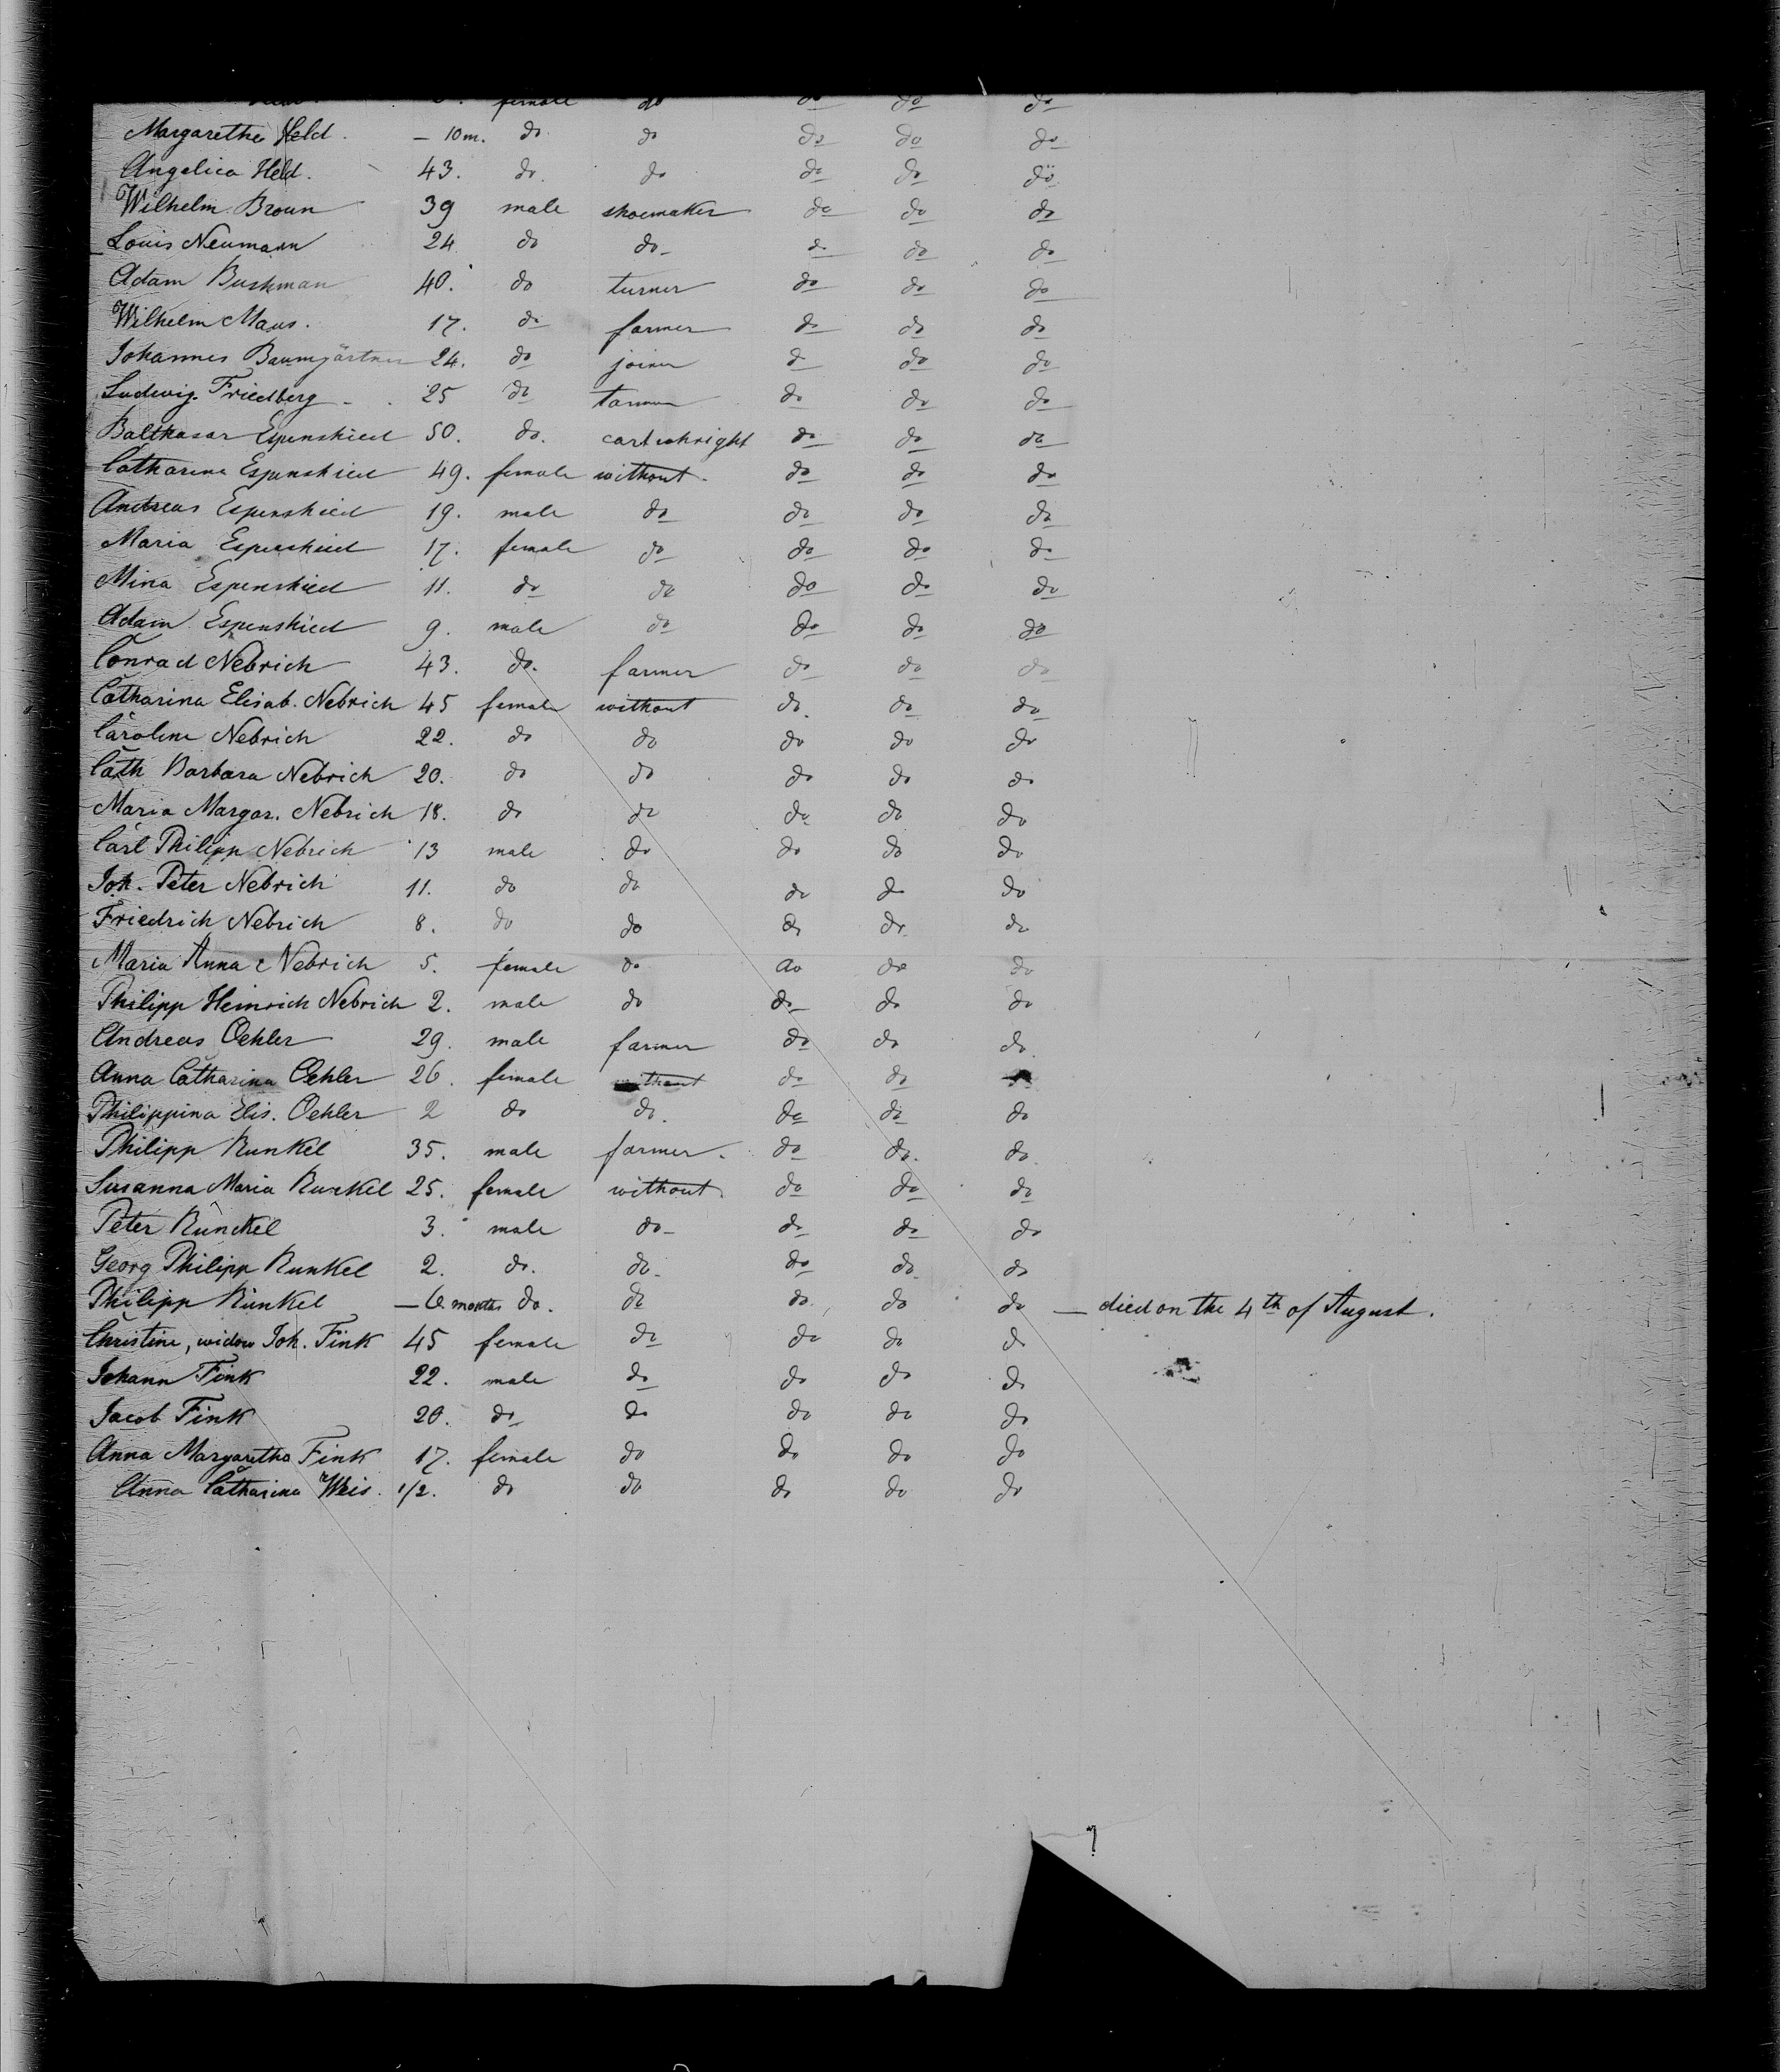 female do do do do
Margaretha Held. – 10 m. do do do do do
Angelica Held. 43. do. do do do do
Wilhelm Broun 39 male shoemaker do do do
Louis Neumann 24 do do do do do
Adam Bushman 40. do turner do do do
Wilhelm Maus. 17. do farmer do do do
Johannes Baumgärtner 24. do joiner do do do
Ludwig Friedberg 25 do do do do
Balthasar Espenshied 50. do. cartwhright do do do
Catharina Espenshied 49. female without do do do
Andreas Espenshied 19. male do do do do
Maria Espenshied 17. female do do do do
Mina Espenshied 11. do do do do do
Adam Espenshied 9. male do do do do
Conrad Nebrich 43. do. farmer do do do
Catharina Elisab. Nebrich 45 female without do. do do
Caroline Nebrich 22. do do do do do
Cath Barbara Nebrich 20. do do do do do
Maria Margar. Nebrich 18. do do do do do
Carl Philipp Nebrich 13 male do do do do
Joh. Peter Nebrich 11. do do do do do
Friedrich Nebrich 8. do do do do do
Maria Anna Nebrich 5. female do do do do
Philipp Heinrich Nebrich 2. male do do do do
Andreas Oehler 29. male farmer do do do
Anna Catharina Oehler 26. female without do do
Philippina Elis. Oehler 2 do do. do do do
Philipp Runkel 35. male farmer. do do. do
Susanna Maria Runkel 25. female without. do do do
Peter Runckel 3. male do do do do
Georg Philipp Runkel 2. do. do do do do
Philipp Runkel – 6 months do. do do do do – died on the 4th of August.
Christine, widow Joh. Fink 45 female do do do do
Johann Fink 22. male do do do do
Jacob Fink 20. do do do do do
Anna Margaretha Fink 17. female do do do do
Anna Catharina Weis. 1/2. do do do do do